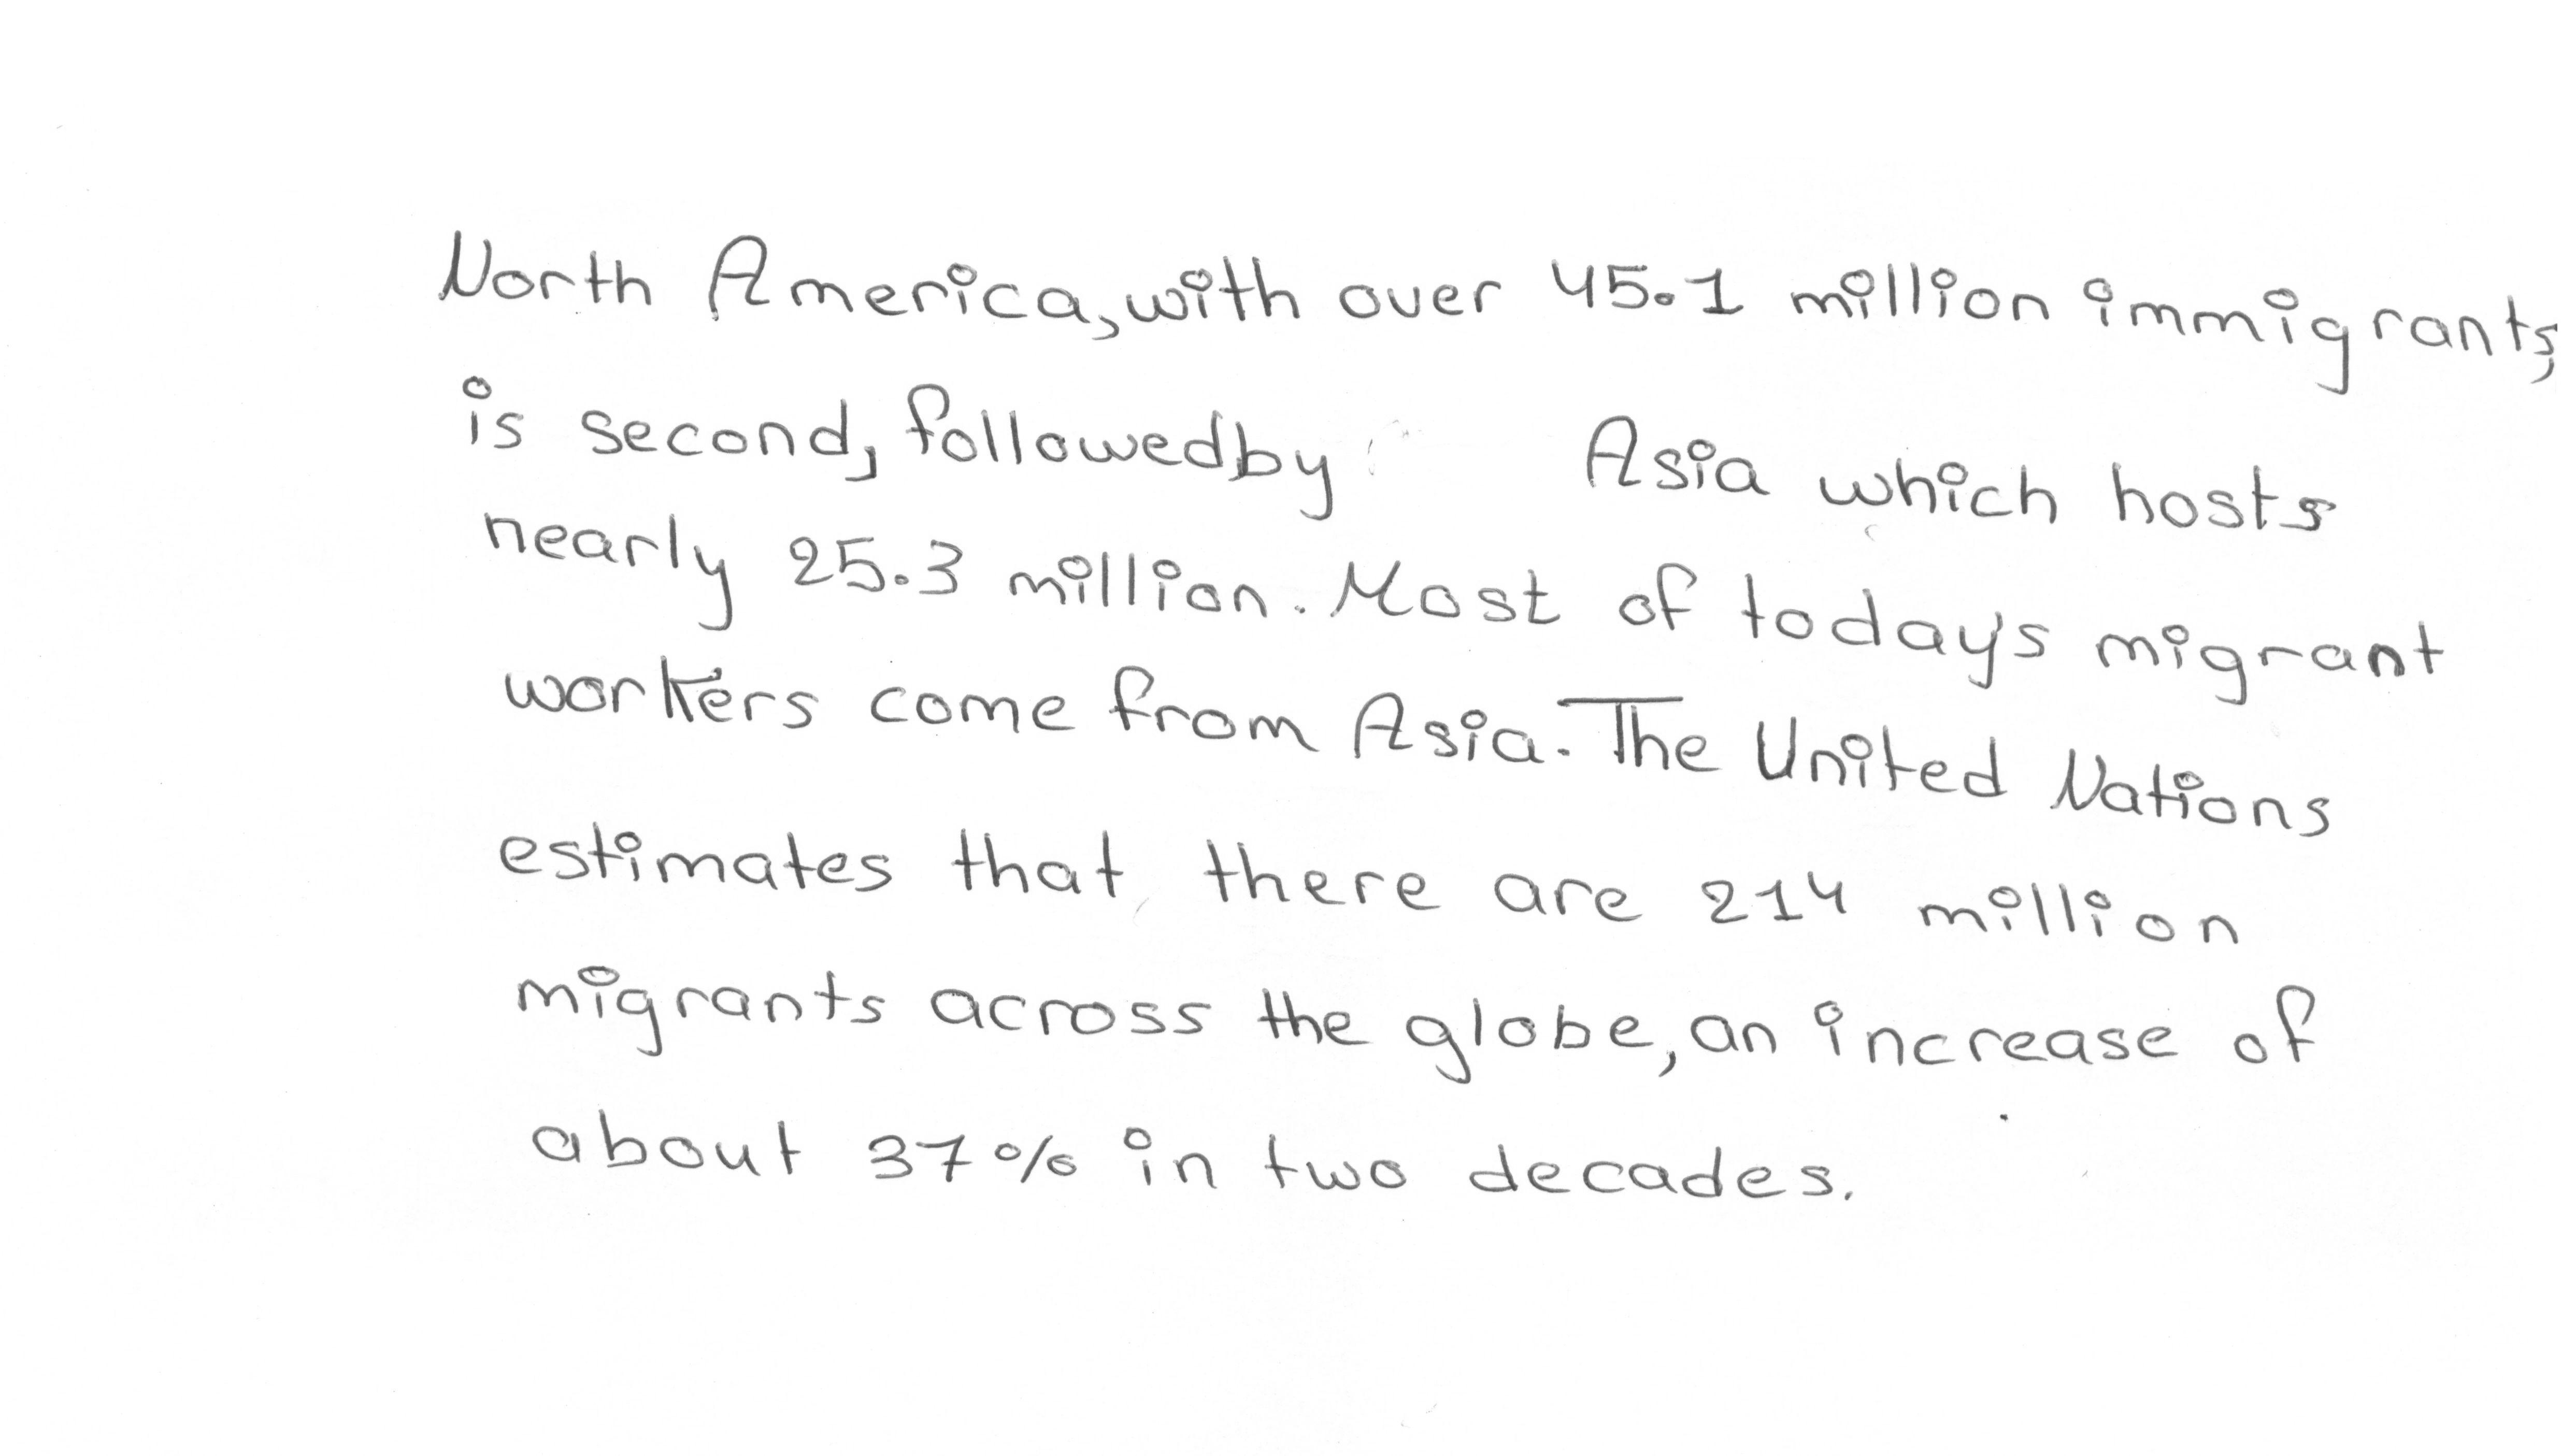 North America, with over 45.1 million immigrants,
is second, followedby Asia which hosts
nearly 25.3 million. Most of today's migrant
workers come from Asia. The United Nations
estimates that there are 214 million
migrants across the globe, an increase of
about 37% in two decades.